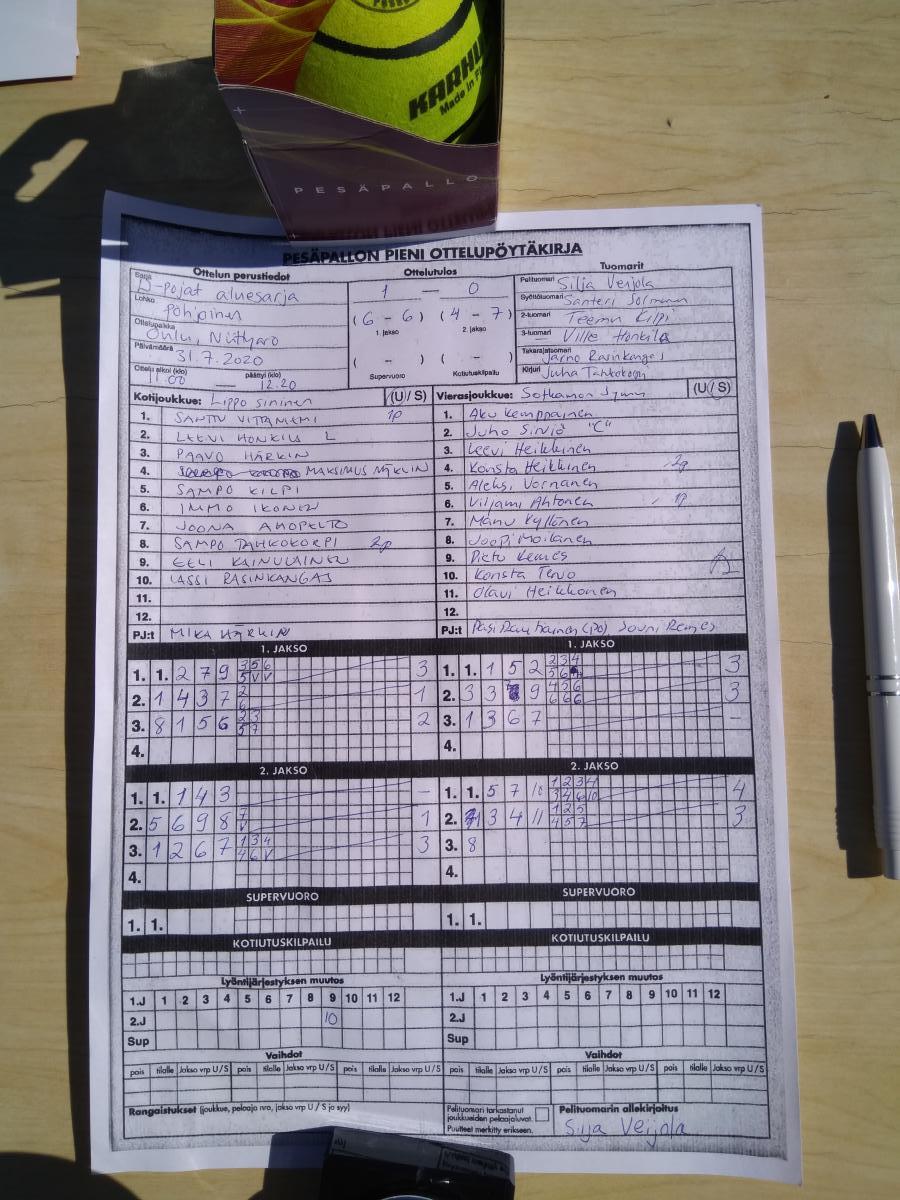 KARHU
Made in
PESÄPALLO
PESÄPALLON PIENI OTTELUPÖYTÄKIRJA
Ottelun perustiedot
Sarja D-pojat aluesarja
Lohko Pohjoinen
Ottelupaikka Oulu, Niittyaro
Päivämäärä 31.7.2020
Ottelu alkoi (klo) 11.00 — päättyi (klo) 12.20
Ottelutulos
1 — 0
(6 - 6) (4 - 7)
1. jakso 2. jakso
( - ) ( - )
Supervuoro Kotiutuskilpailu
Tuomarit
Pelituomari Silja Veijola
Syöttötuomari Santeri
2-tuomari Teemu Kilpi
3-tuomari Ville Honkila
Takarajatuomari Jarno Rasinkangas
Kirjuri Juha Tahkokorpi
Kotijoukkue: Lippo sininen (U / S)
1. SANTTU VIITTANIEMI 1p
2. LEEVI HONKILA
3. PAAVO HÄRKIN
4. MAKSIMUS
5. SAMPO KILPI
6. IMMO IKONEN
7. JOONA AHOPELTO
8. SAMPO TAHKOKORPI 2p
9. EELI KAINULAINEN
10. LASSI RASINKANGAS
11.
12.
PJ:t MIKA HÄRKIN
Vierasjoukkue: Sotkamon Jymy (U / S)
1. Aku Kemppainen
2. Juho Sirviö "C"
3. Leevi Heikkinen
4. Konsta Heikkinen 2p
5. Aleksi Vornanen
6. Viljami Ahtonen 1p
7. Manu Kyllönen
8. Joopi Moilanen
9. Pietu Remes
10. Konsta Tervo
11. Olavi Heikkonen
12.
PJ:t Pasi (PO) Jouni Remes
1. JAKSO
1. 1. 2 7 9 3 5 6 3
5 V V
2. 1 4 3 7 2 1
6
3. 8 1 5 6 2 3 2
5 7
4.
1. JAKSO
1. 1. 1 5 2 2 3 4 3
5 6
2. 3 3 9 4 5 6 3
6 6 6
3. 1 3 6 7 –
4.
2. JAKSO
1. 1. 1 4 3 –
2. 5 6 9 8 7 1
V
3. 1 2 6 7 1 3 4 3
4 6 V
4.
2. JAKSO
1. 1. 5 7 10 1 2 3 4 4
3 4 6 10
2. 3 4 11 1 2 5 3
4 5 7
3. 8
4.
SUPERVUORO
1. 1.
SUPERVUORO
1. 1.
KOTIUTUSKILPAILU
KOTIUTUSKILPAILU
Lyöntijärjestyksen muutos
1.J 1 2 3 4 5 6 7 8 9 10 11 12
2.J 10
Sup
Lyöntijärjestyksen muutos
1.J 1 2 3 4 5 6 7 8 9 10 11 12
2.J
Sup
Vaihdot
pois tilalle Jakso vrp U/S pois tilalle Jakso vrp U/S pois tilalle Jakso vrp U/S
Vaihdot
pois tilalle Jakso vrp U/S pois tilalle Jakso vrp U/S pois tilalle Jakso vrp U/S
Rangaistukset (joukkue, pelaaja nro, jakso vrp U / S ja syy)
Pelituomari tarkastanut
joukkueiden pelaajaluvat.
Puutteet merkitty erikseen.
Pelituomarin allekirjoitus
Silja Veijola